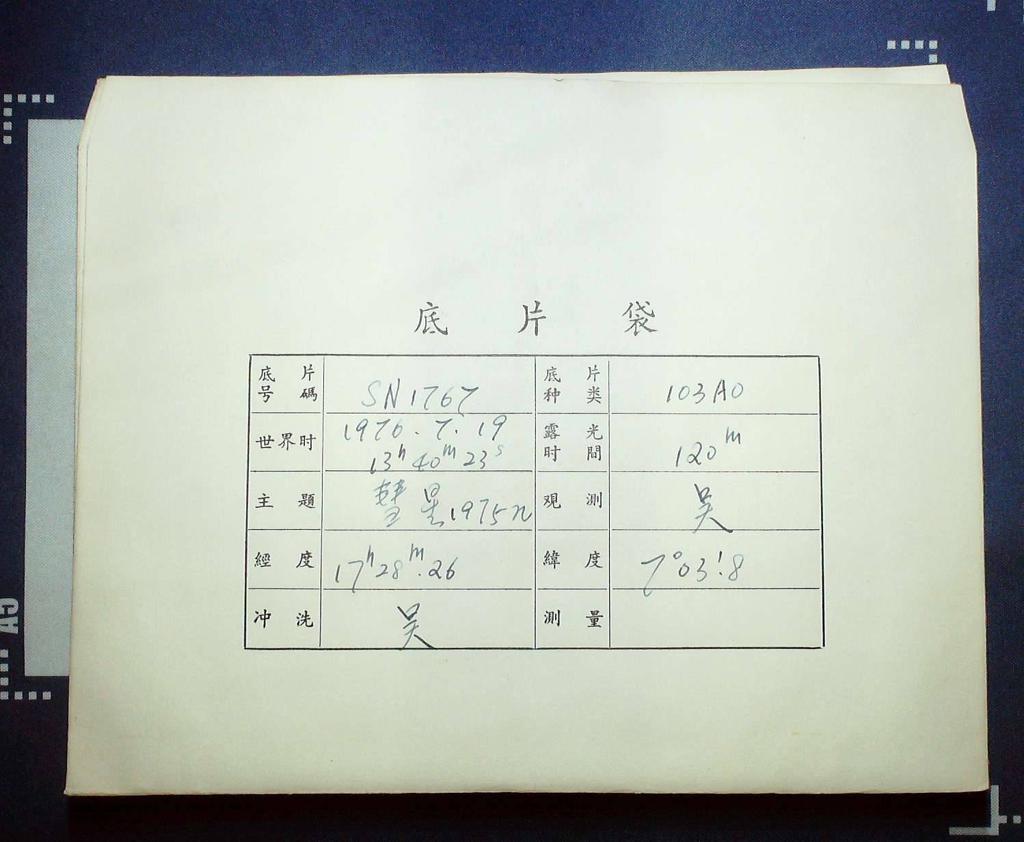 底 片 袋
底片号碼 SN1767 底片种类 103AO
世界时 1976.7.19
13ʰ40ᵐ23ˢ 露光时間 120ᵐ
主題 彗星1975n 观測 吴
經度 17ʰ28ᵐ.26 緯度 7°03!8
冲洗 吴 測量